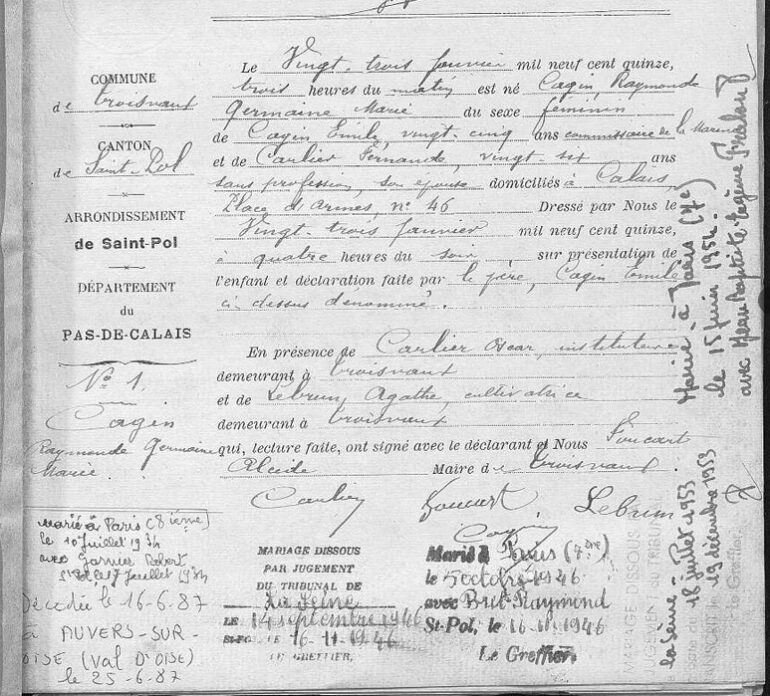 COMMUNE
de Troisvaux
CANTON
de Saint-Pol
ARRONDISSEMENT
de Saint-Pol
DÉPARTEMENT
du
PAS-DE-CALAIS
No 1.
Cagin
Raymonde Germaine
Marie.
Le Vingt-trois Janvier mil neuf cent quinze,
trois heures du matin est né Cagin, Raymonde
Germaine Marie du sexe féminin
de Cagin Emile, vingt-cinq ans commissaire de la Marine
et de Carlier Fernande, vingt-six ans
sans profession, son épouse domiciliés à Calais,
Place d'Armes no 46 Dressé par Nous le
Vingt-trois Janvier mil neuf cent quinze,
à quatre heures du soir sur présentation de
l'enfant et déclaration faite par le père, Cagin Emile
ci-dessus dénommé.
En présence de Carlier Oscar, instituteur
demeurant à Troisvaux
et de Lebrun Agathe, cultivatrice
demeurant à Troisvaux
qui, lecture faite, ont signé avec le déclarant et Nous Foucart
Alcide Maire de Troisvaux.
Carlier Foucart Lebrun
Cagin
Marié à Paris (8ième)
le 10 Juillet 1934
avec Garnier Robert
St Pol le 17 Juillet 1934
Décédée le 16-6-87
à AUVERS-SUR-
OISE (VAL D'OISE)
le 25-6-87
MARIAGE DISSOUS
PAR JUGEMENT
DU TRIBUNAL DE
La Seine
LE 14 septembre 1946
16-11-1946
LE GREFFIER,
Marié à Paris (7ère)
le 5 octobre 1946
avec Brit Raymond
St-Pol, le 16-11-1946
Le Greffier
MARIAGE DISSOUS
JUGEMENT DU TRIBUNAL
la Seine - Paris
18 juillet 1953
19 décembre 1953
Le Greffier,
Marié à Paris (7e)
le 15 juin 1954.
avec Jean Baptiste Eugène